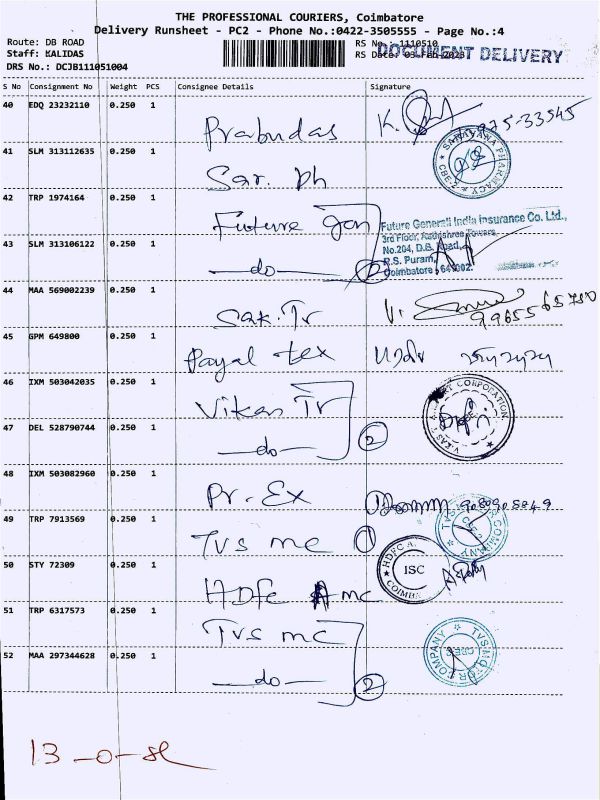 THE PROFESSIONAL COURIERS, Coimbatore
Delivery Runsheet - PC2 - Phone No.:0422-3505555 - Page No.:4
Route: DB ROAD
RS No : 1110510
DOCUMENT DELIVERY
Staff: KALIDAS
RS Date: 03-Feb-2023
DRS No.: DCJB111051004
S No Consignment No Weight PCS Consignee Details Signature
40 EDQ 23232110 0.250 1 Prabudas K.
41 SLM 313112635 0.250 1 Sar. Ph
SANJAYANA PHARMACY CBE-2
42 TRP 1974164 0.250 1 Future Gen
Future Generali India Insurance Co. Ltd.,
3rd Floor, Towers,
No.204, D.B. Road,
R.S. Puram,
Coimbatore - 641002.
43 SLM 313106122 0.250 1 —do— 2
44 MAA 569002239 0.250 1 Sak. Tr V.
45 GPM 649800 0.250 1 Payal tex
46 IXM 503042035 0.250 1 Vikas Tr
CORPORATION
47 DEL 528790744 0.250 1 —do— 2
48 IXM 503082960 0.250 1 Pr. Ex
49 TRP 7913569 0.250 1 TVS mc 1
COMPANY
50 STY 72309 0.250 1 HDFC Amc
HDFC A ISC COIMB
51 TRP 6317573 0.250 1 TVS mc
TVS MOTOR COMPANY
52 MAA 297344628 0.250 1 —do— 2
13-0-sl